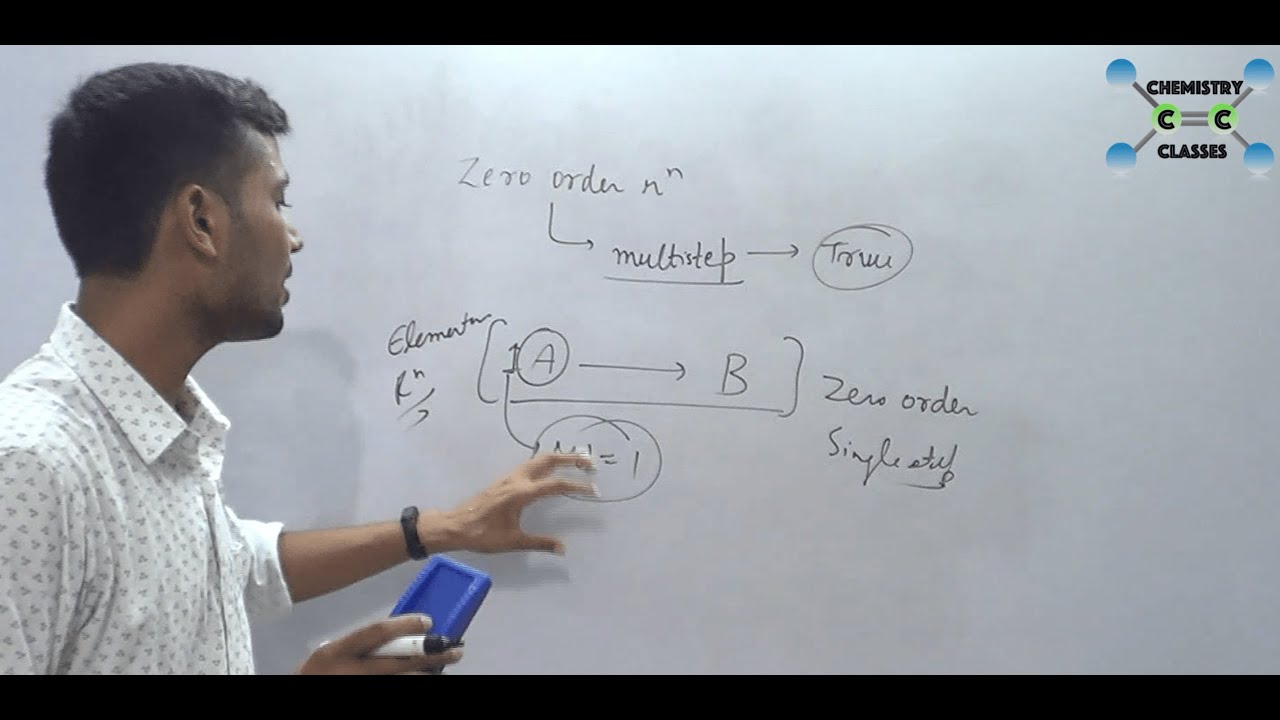 CHEMISTRY
C C
CLASSES
Zero order rⁿ
multistep → True
Elementary
Rⁿ
1 A → B
Zero order
Single step
= 1